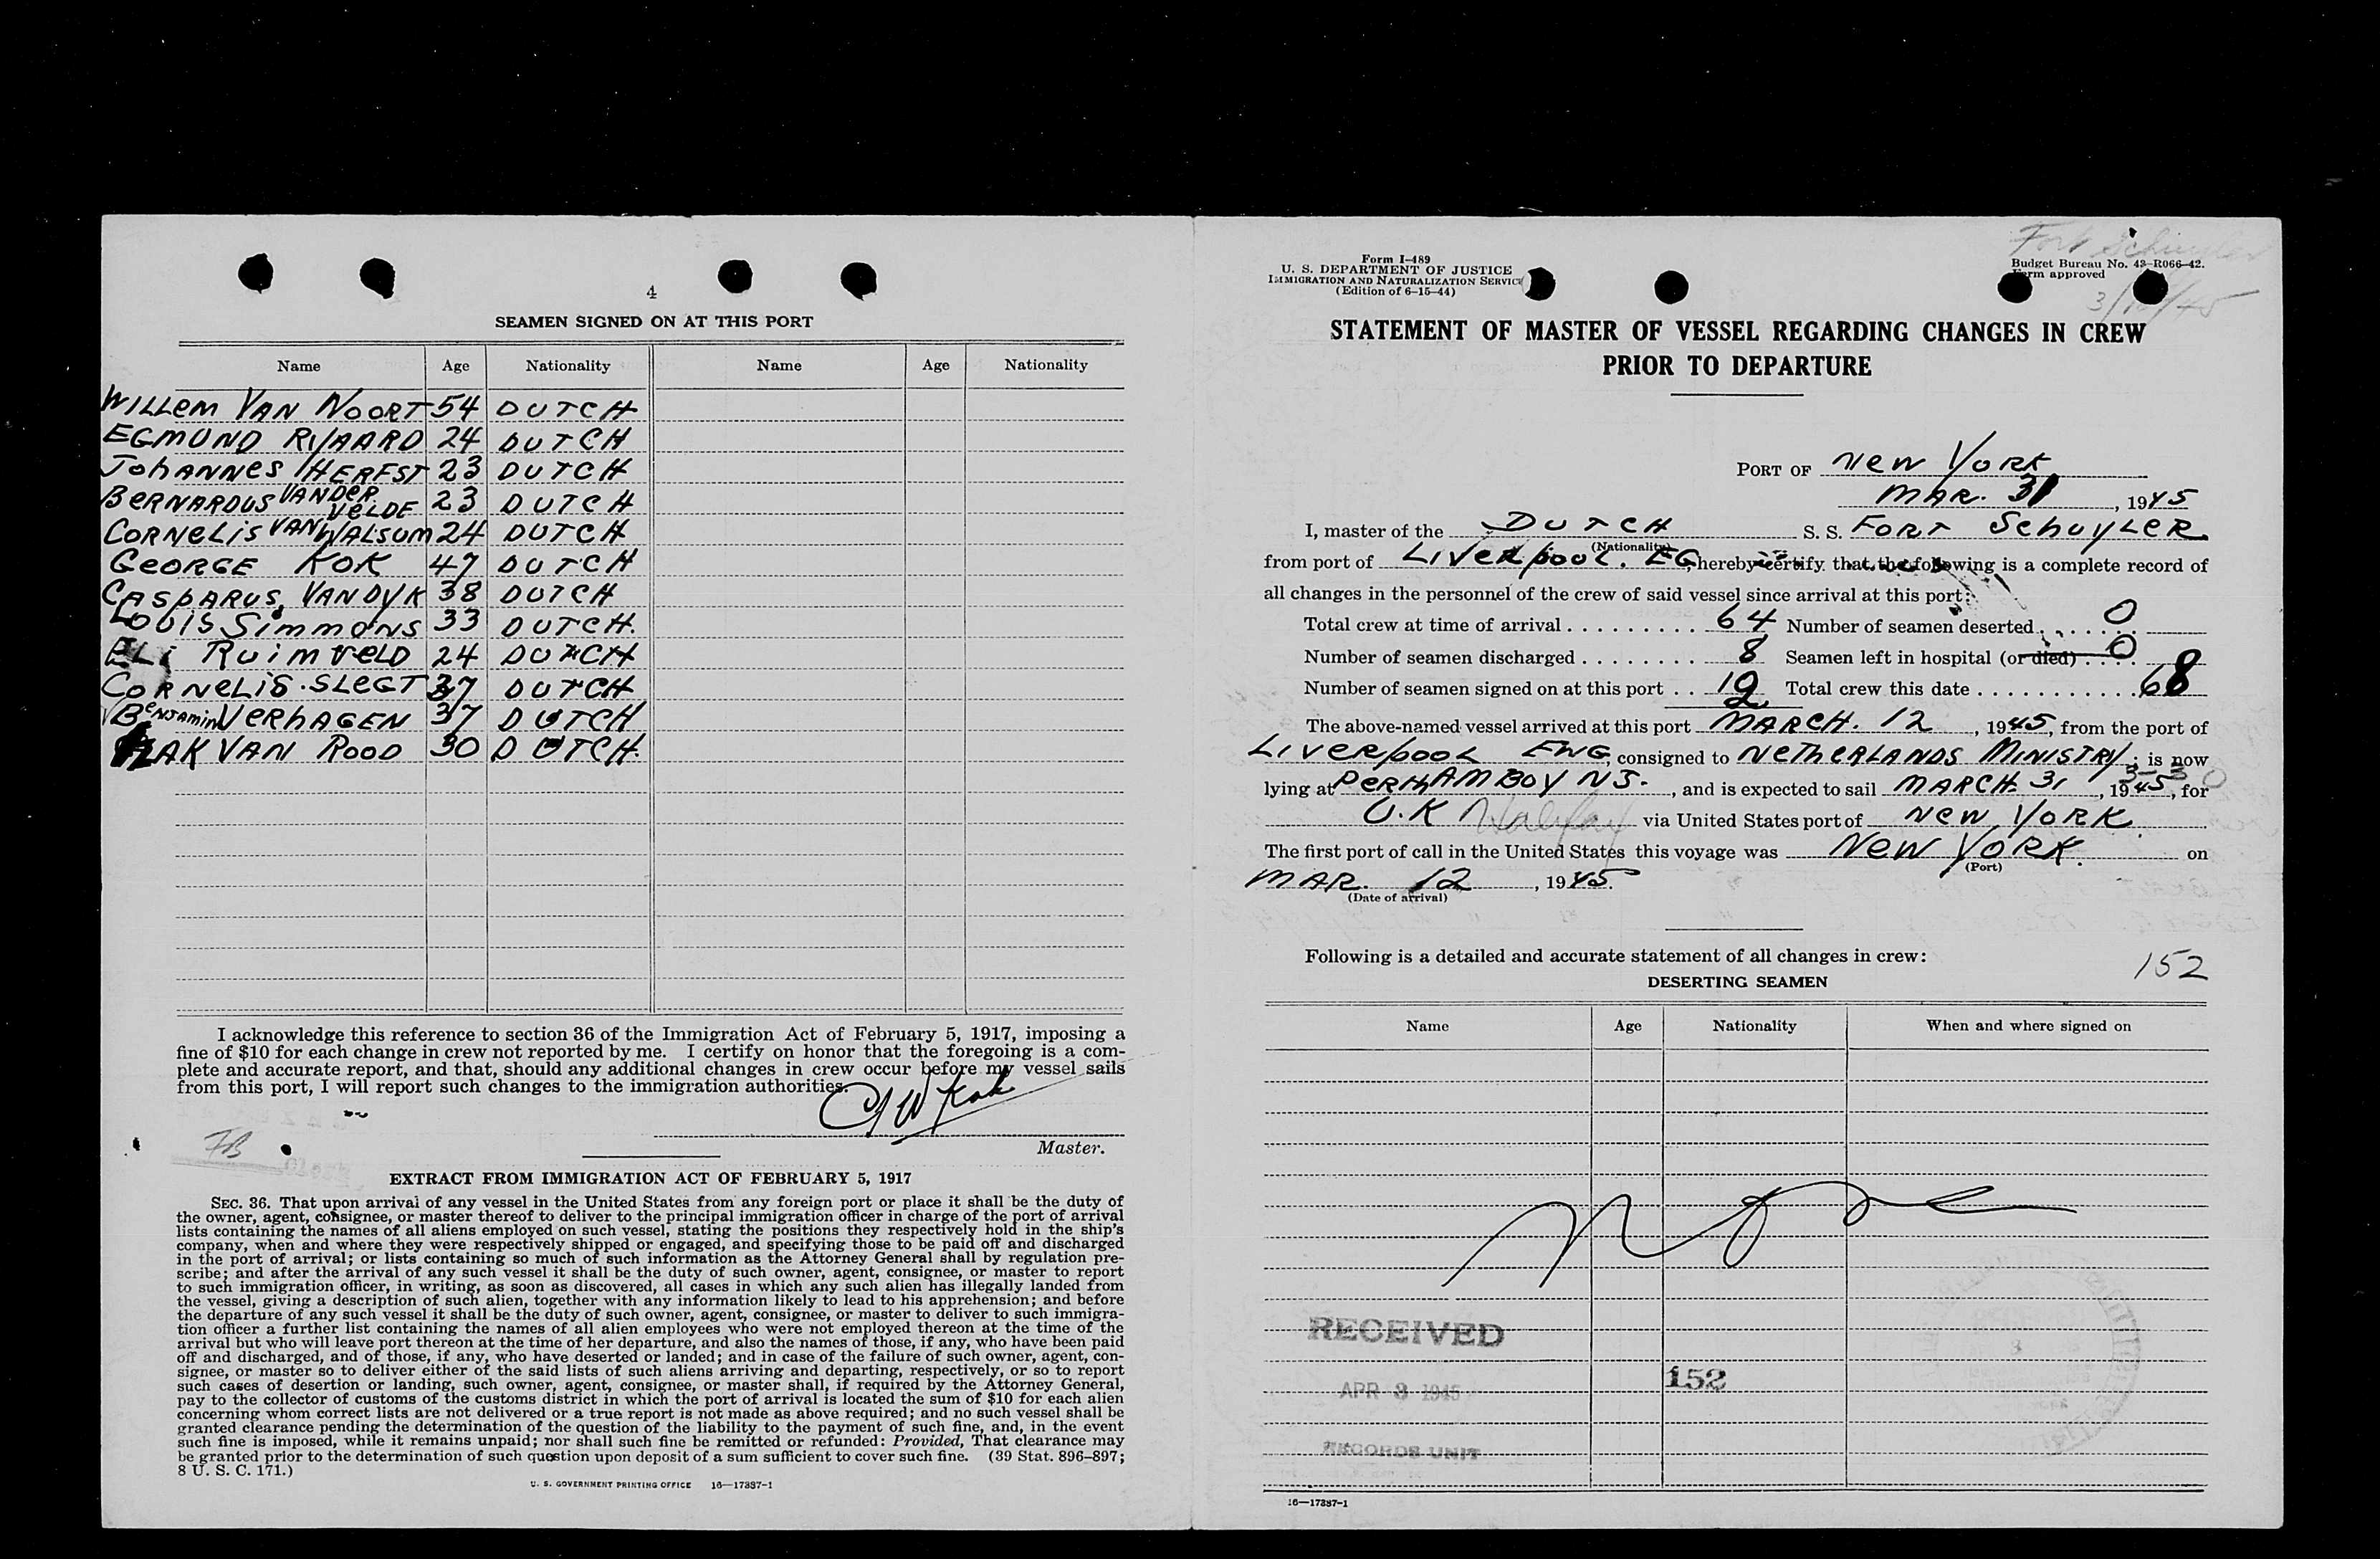 4
SEAMEN SIGNED ON AT THIS PORT
Name Age Nationality Name Age Nationality
WILLEM VAN NOORT 54 DUTCH
EGMUND RIJAARD 24 DUTCH
JOHANNES HERFST 23 DUTCH
BERNARDUS VANDER VELDE 23 DUTCH
CORNELIS VAN WALSUM 24 DUTCH
GEORGE KOK 47 DUTCH
CASPARUS, VAN DYK 38 DUTCH
LOUIS SIMMONS 33 DUTCH.
ELI RUIMVELD 24 DUTCH
CORNELIS. SLEGT 37 DUTCH
BENJAMIN VERHAGEN 37 DUTCH
VAN ROOD 30 DUTCH.
I acknowledge this reference to section 36 of the Immigration Act of February 5, 1917, imposing a
fine of $10 for each change in crew not reported by me. I certify on honor that the foregoing is a com-
plete and accurate report, and that, should any additional changes in crew occur before my vessel sails
from this port, I will report such changes to the immigration authorities.
Kok
Master.
FB
EXTRACT FROM IMMIGRATION ACT OF FEBRUARY 5, 1917
SEC. 36. That upon arrival of any vessel in the United States from any foreign port or place it shall be the duty of
the owner, agent, consignee, or master thereof to deliver to the principal immigration officer in charge of the port of arrival
lists containing the names of all aliens employed on such vessel, stating the positions they respectively hold in the ship's
company, when and where they were respectively shipped or engaged, and specifying those to be paid off and discharged
in the port of arrival; or lists containing so much of such information as the Attorney General shall by regulation pre-
scribe; and after the arrival of any such vessel it shall be the duty of such owner, agent, consignee, or master to report
to such immigration officer, in writing, as soon as discovered, all cases in which any such alien has illegally landed from
the vessel, giving a description of such alien, together with any information likely to lead to his apprehension; and before
the departure of any such vessel it shall be the duty of such owner, agent, consignee, or master to deliver to such immigra-
tion officer a further list containing the names of all alien employees who were not employed thereon at the time of the
arrival but who will leave port thereon at the time of her departure, and also the names of those, if any, who have been paid
off and discharged, and of those, if any, who have deserted or landed; and in case of the failure of such owner, agent, con-
signee, or master so to deliver either of the said lists of such aliens arriving and departing, respectively, or so to report
such cases of desertion or landing, such owner, agent, consignee, or master shall, if required by the Attorney General,
pay to the collector of customs of the customs district in which the port of arrival is located the sum of $10 for each alien
concerning whom correct lists are not delivered or a true report is not made as above required; and no such vessel shall be
granted clearance pending the determination of the question of the liability to the payment of such fine, and, in the event
such fine is imposed, while it remains unpaid; nor shall such fine be remitted or refunded: Provided, That clearance may
be granted prior to the determination of such question upon deposit of a sum sufficient to cover such fine. (39 Stat. 896–897;
8 U. S. C. 171.)
U. S. GOVERNMENT PRINTING OFFICE 16—17387-1
Fort Schuyler
Form I-489
U. S. DEPARTMENT OF JUSTICE
IMMIGRATION AND NATURALIZATION SERVICE
(Edition of 6-15-44)
Budget Bureau No. 43-R066-42.
Form approved
STATEMENT OF MASTER OF VESSEL REGARDING CHANGES IN CREW
PRIOR TO DEPARTURE
PORT OF NEW YORK
MAR. 31, 1945
I, master of the DUTCH S. S. FORT SCHUYLER
(Nationality)
from port of LIVERPOOL. EG, hereby certify that the following is a complete record of
all changes in the personnel of the crew of said vessel since arrival at this port:
Total crew at time of arrival 64 Number of seamen deserted 0
Number of seamen discharged 8 Seamen left in hospital (or died) 0
Number of seamen signed on at this port 12 Total crew this date 68
The above-named vessel arrived at this port MARCH. 12, 1945, from the port of
LIVERPOOL ENG, consigned to NETHERLANDS MINISTRY; is now
lying at PERTH AMBOY NJ., and is expected to sail MARCH 31, 1945, for
U.K Halifax via United States port of NEW YORK.
The first port of call in the United States this voyage was NEW YORK. on
(Port)
MAR. 12, 1945.
(Date of arrival)
Following is a detailed and accurate statement of all changes in crew:
152
DESERTING SEAMEN
Name Age Nationality When and where signed on
None
RECEIVED
152
APR 3 1945
RECORDS UNIT
16—17387-1